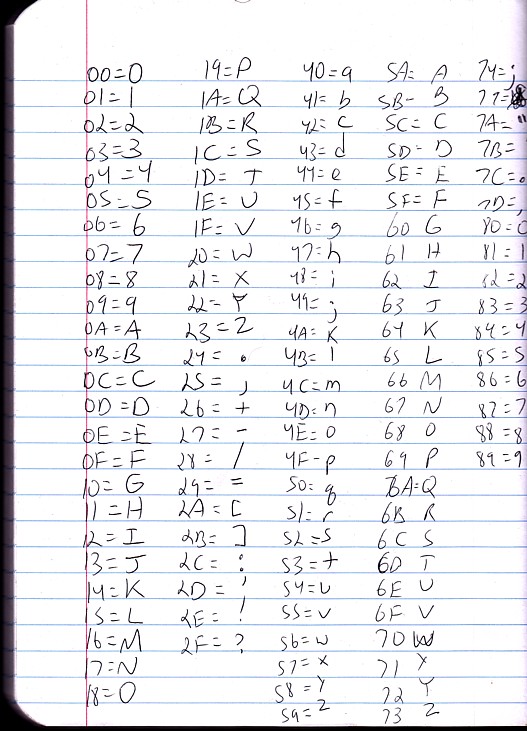 00=0
01=1
02=2
03=3
04=4
05=5
06=6
07=7
08=8
09=9
0A=A
0B=B
0C=C
0D=D
0E=E
0F=F
10=G
11=H
12=I
13=J
14=K
15=L
16=M
17=N
18=O
19=P
1A=Q
1B=R
1C=S
1D=T
1E=U
1F=V
20=W
21=X
22=Y
23=Z
24=.
25=,
26=+
27=-
28=/
29==
2A=[
2B=]
2C=:
2D='
2E=!
2F=?
40=a
41=b
42=c
43=d
44=e
45=f
46=g
47=h
48=i
49=j
4A=K
4B=l
4C=m
4D=n
4E=o
4F-p
50=q
51=r
52=s
53=t
54=u
55=v
56=w
57=x
58=y
59=z
5A= A
5B- B
5C= C
5D= D
5E= E
5F= F
60 G
61 H
62 I
63 J
64 K
65 L
66 M
67 N
68 O
69 P
6A=Q
6B R
6C S
6D T
6E U
6F V
70 W
71 X
72 Y
73 Z
74=;
77=
7A="
7B=
7C=.
7D=,
80=0
81=1
82=2
83=3
84=4
85=5
86=6
87=7
88=8
89=9